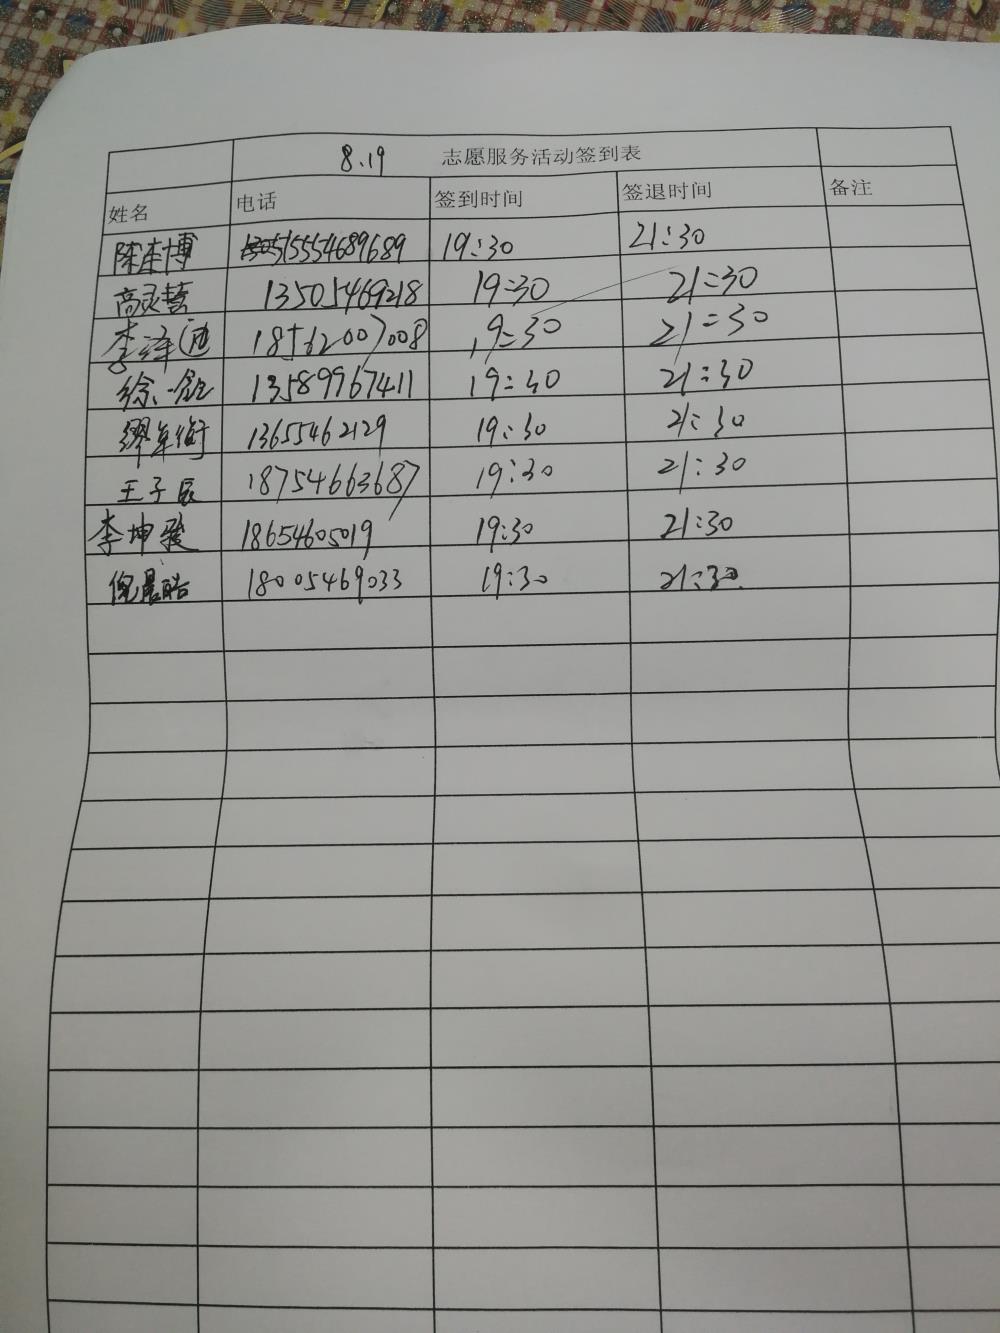 8.19 志愿服务活动签到表
姓名 电话 签到时间 签退时间 备注
陈 博 15554689689 19:30 21:30
高灵慧 13505469218 19:30 21:30
李泽 18562007008 19:30 21:30
徐一 13589967411 19:30 21:30
缪 衡 13655462129 19:30 21:30
王子辰 18754663687 19:30 21:30
李坤骏 18654605019 19:30 21:30
倪晨皓 18005469033 19:30 21:30